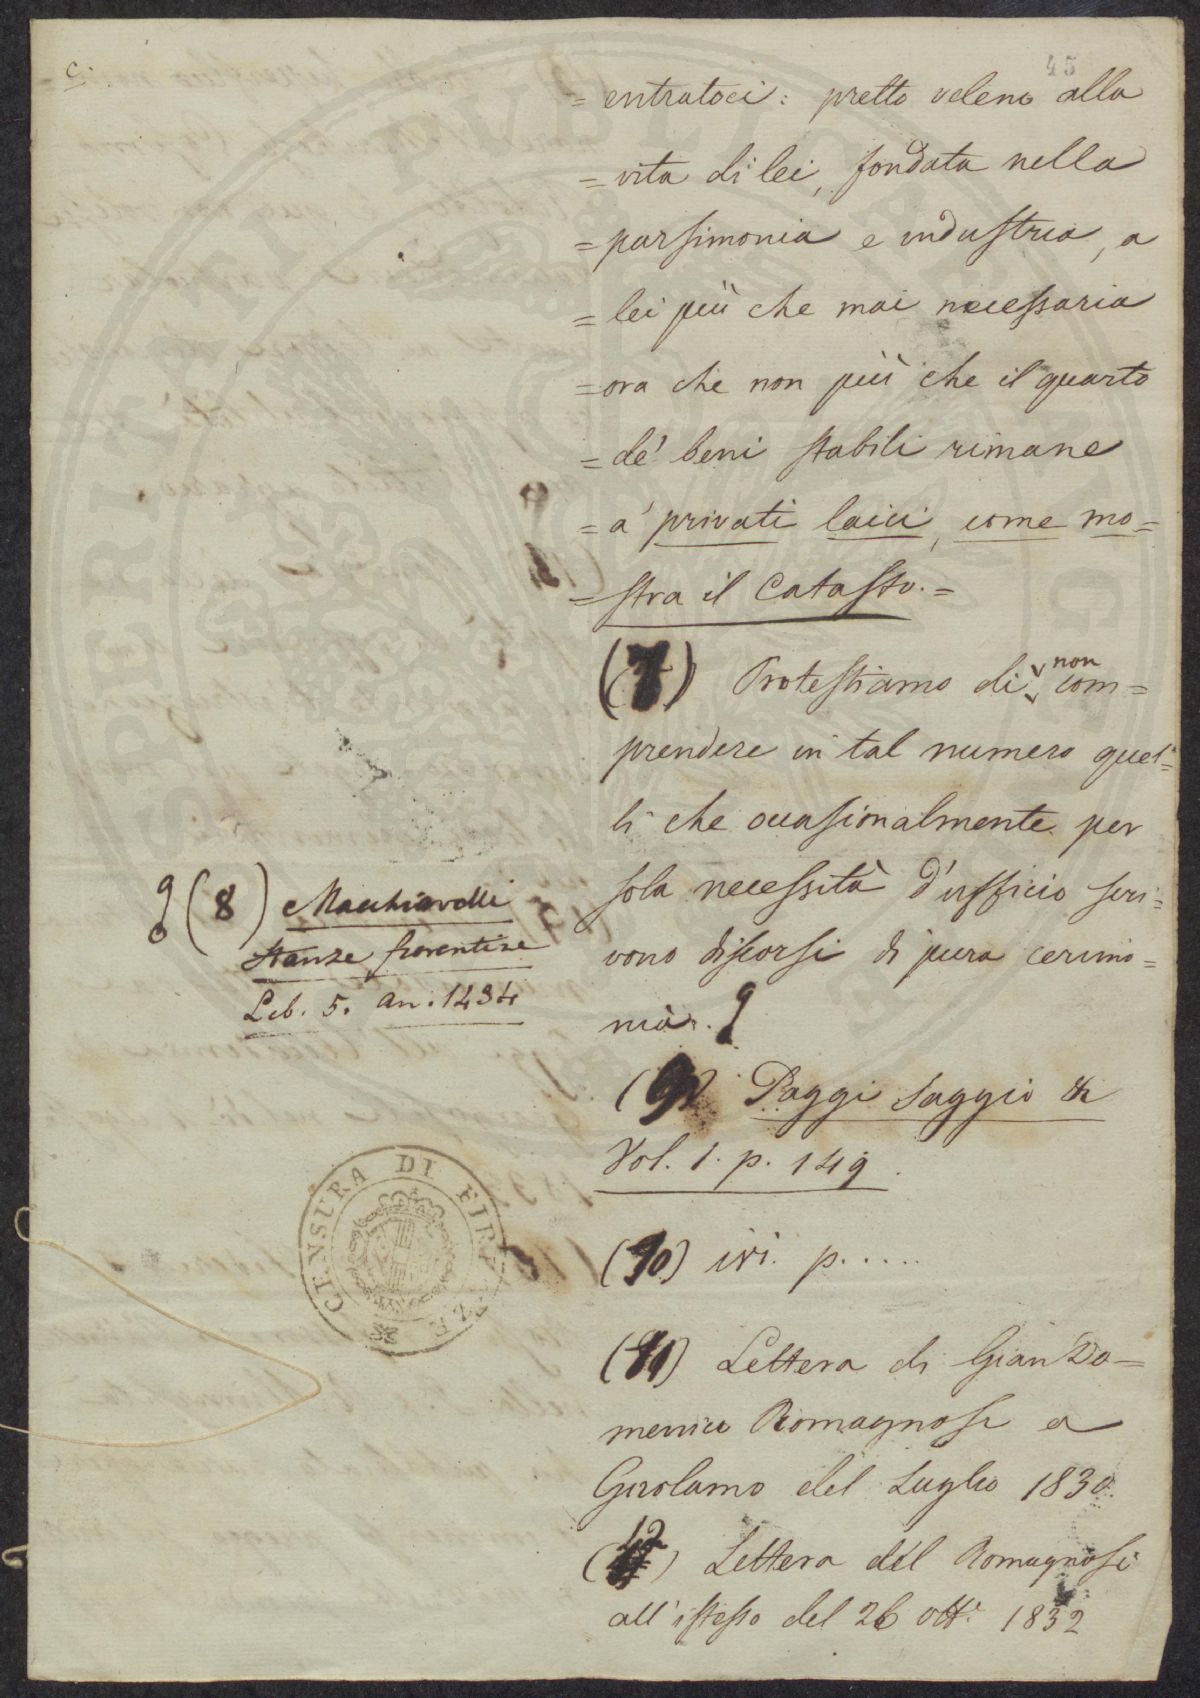 c.
45
= entratoci: pretto veleno alla
= vita di lei, fondata nella
= parsimonia e industria, a
= lei più che mai necessaria
= ora che non più che il quarto
= de' beni stabili rimane
= a' privati laici, come mo=
= stra il Catasto. =
(7) Protestiamo di non com=
prendere in tal numero quel=
li che occasionalmente per
sola necessità d'ufficio scri=
vono discorsi di pura cerimo=
nia.
(8) Macchiavelli
Stanze fiorentine
Lib. 5. an. 1434
(9) Paggi Saggio &
Vol. 1. p. 149.
(10) ivi. p. . . . .
(11) Lettera di Gian Do=
menico Romagnosi a
Girolamo del Luglio 1830.
(12) Lettera del Romagnosi
all'istesso del 26 ott.e 1832
CENSURA DI FIRENZE